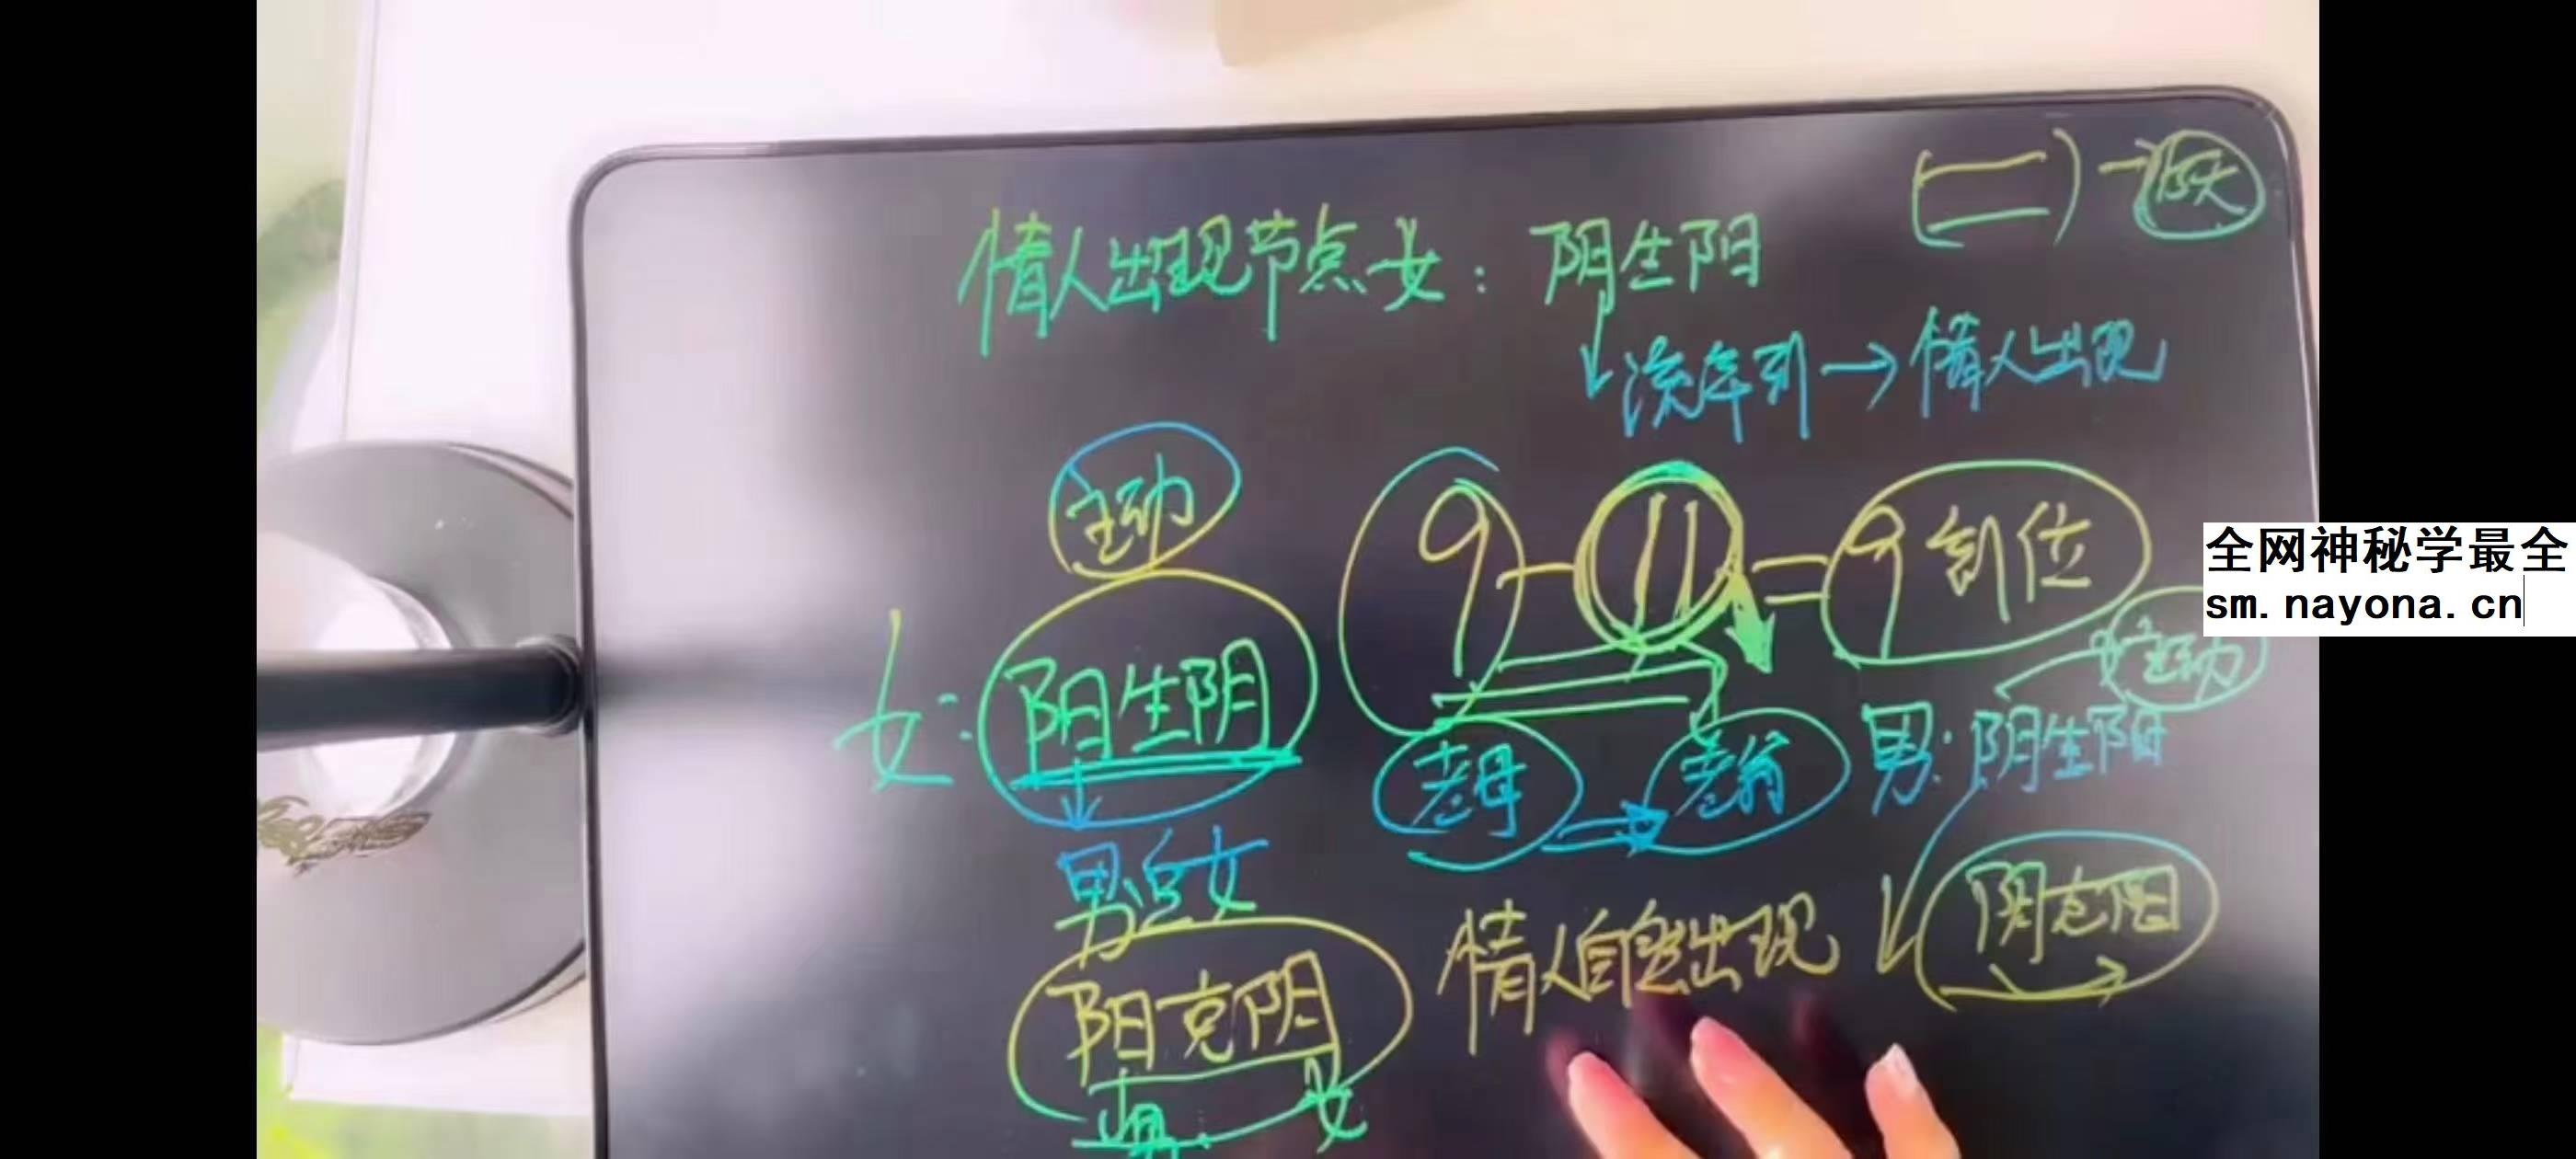 情人出现节点女：阴生阳
流年到→情人出现
主动
9-11=9到位
全网神秘学最全
sm.nayona.cn
主动
女：阳生阴
老母→老翁
男：阴生阳
男追女
阴克阳
情人自然出现
阳克阴
男 女